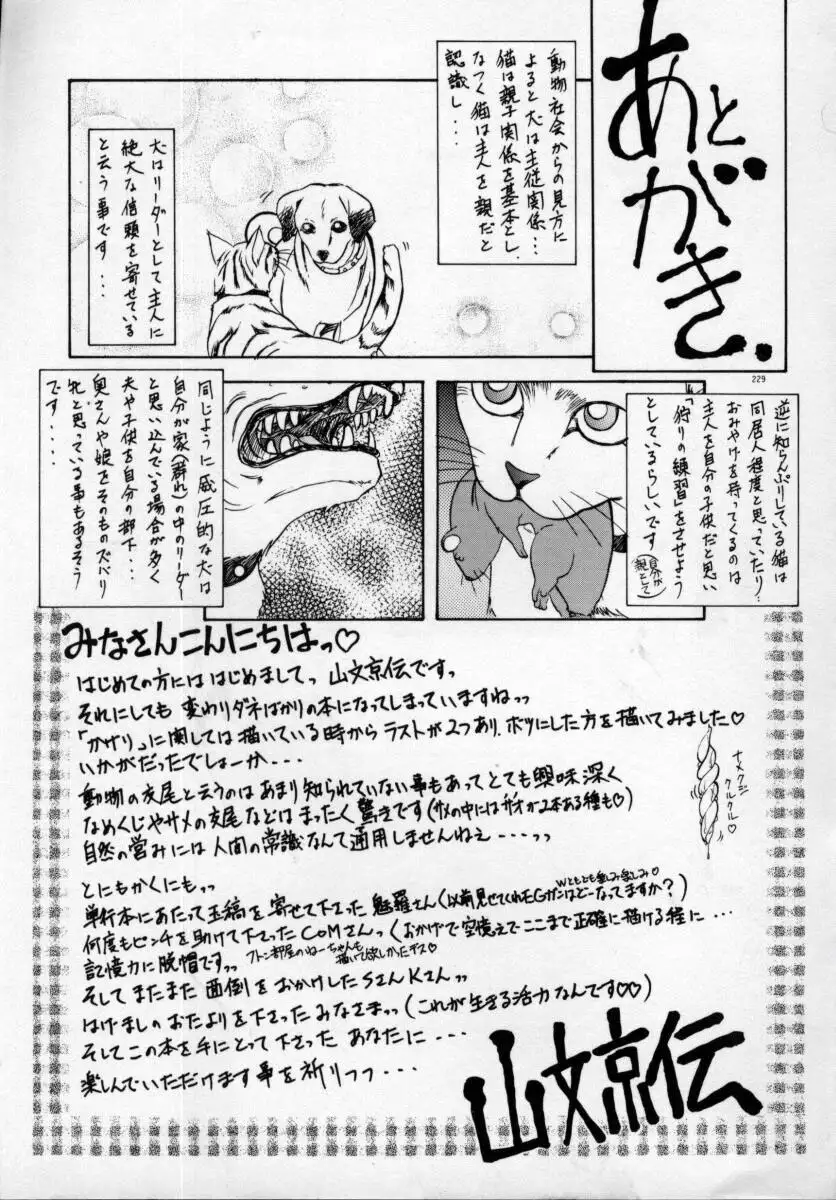 あとがき.
動物社会からの見方に
よると犬は主従関係・・・
猫は親子関係を基本とし、
なつく猫は主人を親だと
認識し・・・
犬はリーダーとして主人に
絶大な信頼を寄せている
と云う事です・・・
229
逆に知らんぷりしている猫は
同居人程度と思っていたり・・・
おみやげを持ってくるのは
主人を自分の子供だと思い
「狩りの練習」をさせよう
としているらしいです
(自分が
親として)
同じように威圧的な犬は
自分が家(群れ)の中のリーダー
と思い込んでいる場合が多く
夫や子供を自分の部下・・・
奥さんや娘をそのものズバリ
牝と思っている事もあるそう
です・・・・
みなさんこんにちはっ♡
はじめての方にははじめましてっ 山文京伝ですっ
それにしても 変わりダネばかりの本になってしまっていますねっっ
「かげり」に関しては描いている時から ラストが2つあり、ボツにした方を描いてみました♡
いかがだったでしょーか・・・
動物の交尾と云うのは あまり知られていない事もあって とても興味深く
なめくじやサメの交尾などは まったく驚きです(サメの中にはサオが2本ある種も♡)
自然の営みには 人間の常識なんて通用しませんねえ・・・・っっ
ナメクジ
クルクル♡
とにもかくにもっっ
単行本にあたって玉稿を寄せて下さった 魅羅さん(以前見せてくれたEGガンはどーなってますか?)
Wともども楽しみ楽しみ♡
何度もピンチを助けて下さった COMさんっ(おかげで空憶えでここまで正確に描ける程に・・・
記憶力に脱帽ですっっ
フトン部屋のねーちゃんも
描いて欲しかったデス♡
そして またまた 面倒をおかけした Sさん Kさんっっ
はげましのおたよりを下さったみなさまっっ(これが生きる活力なんです♡♡)
そしてこの本を手にとって下さった あなたに・・・
楽しんでいただけます事を祈りつつ・・・
山文京伝